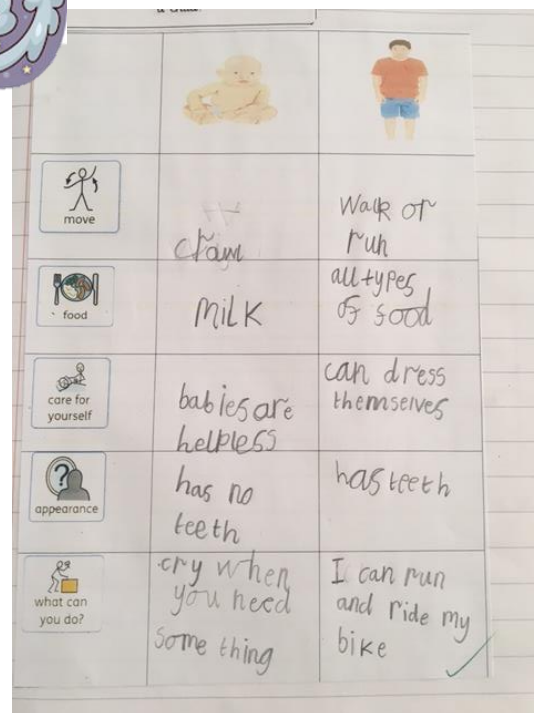 move
crawl
Walk or
run
food
MilK
all types
of food
care for
yourself
babies are
helpless
can dress
themselves
appearance
has no
teeth
has teeth
what can
you do?
cry when
you need
some thing
I can run
and ride my
biKe